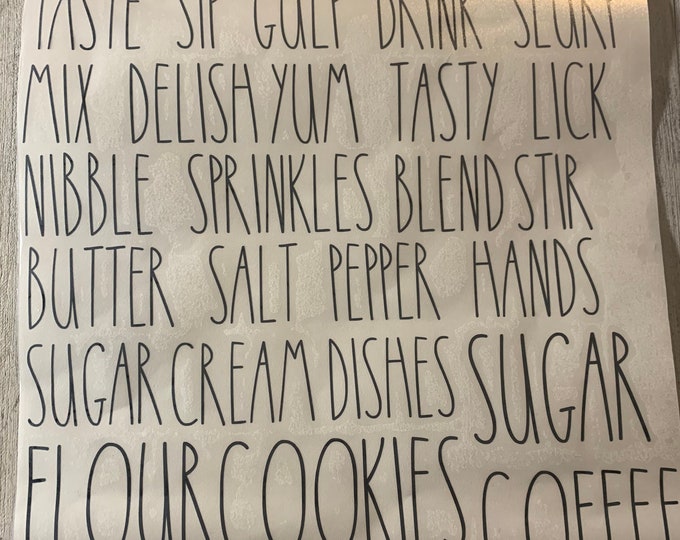 TASTE SIP GULP DRINK SLURP
MIX DELISH YUM TASTY LICK
NIBBLE SPRINKLES BLEND STIR
BUTTER SALT PEPPER HANDS
SUGAR CREAM DISHES SUGAR
FLOUR COOKIES COFFEE